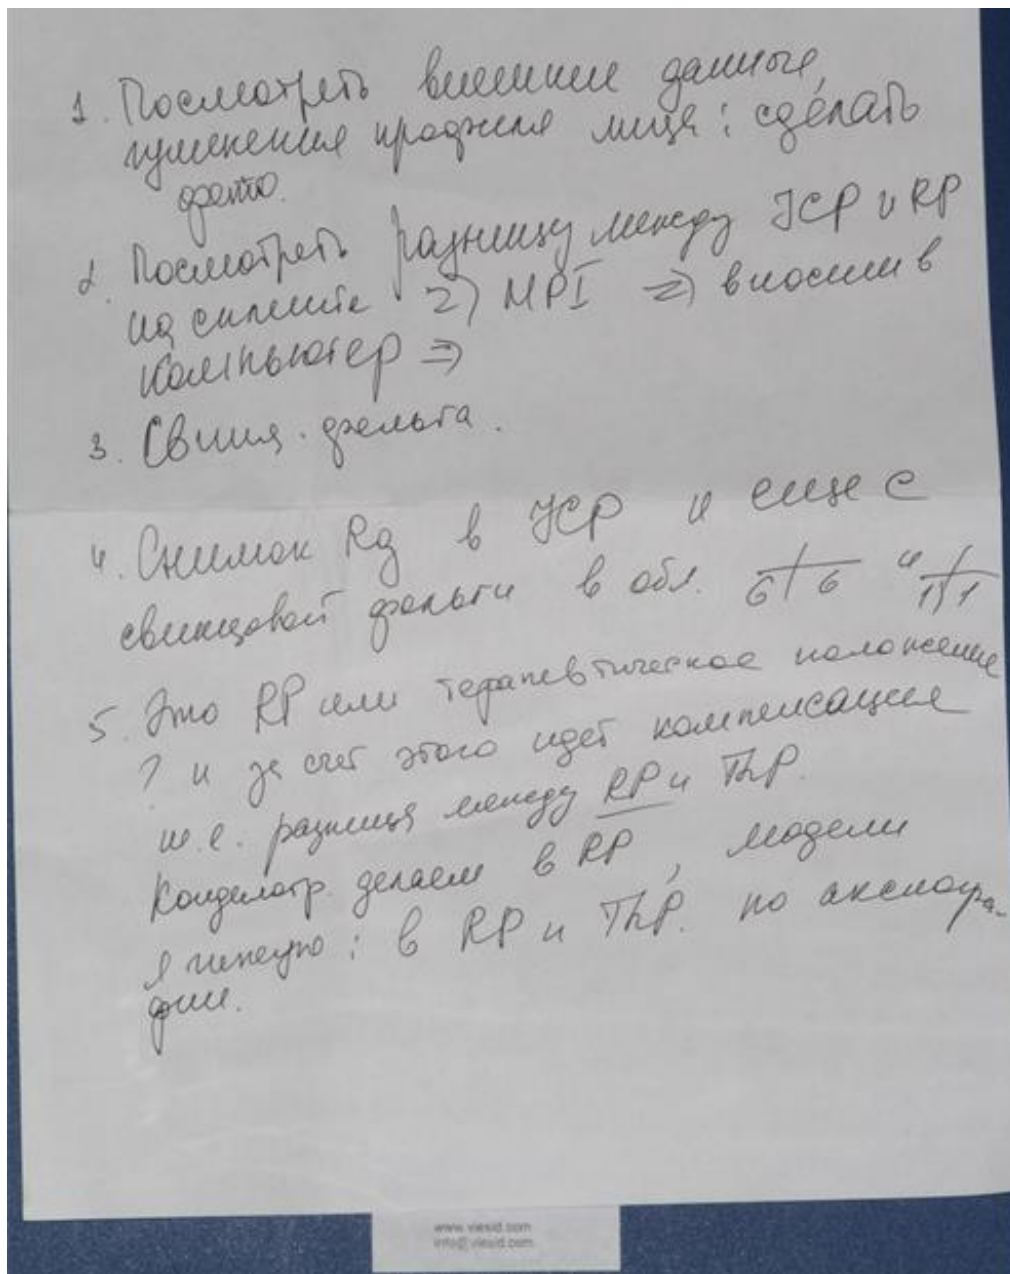 1. Посмотреть внешние данные,
изменения профиля лица: сделать
фото.
2. Посмотреть разницу между ICP и RP
на сплинте => MPI => вносим в
компьютер =>
3. Свинц. фольга.
4. Снимок Rg в ICP и еще с
свинцовой фольги в обл. 6 6 и 1 1
5. Это RP или терапевтическое положение
? и за счет этого идет компенсация
т.е. разница между RP и ThP.
Кондилогр. делаем в RP, модели
я гипсую: в RP и ThP. по аксиогра-
фии.
www.viesid.com
info@viesid.com